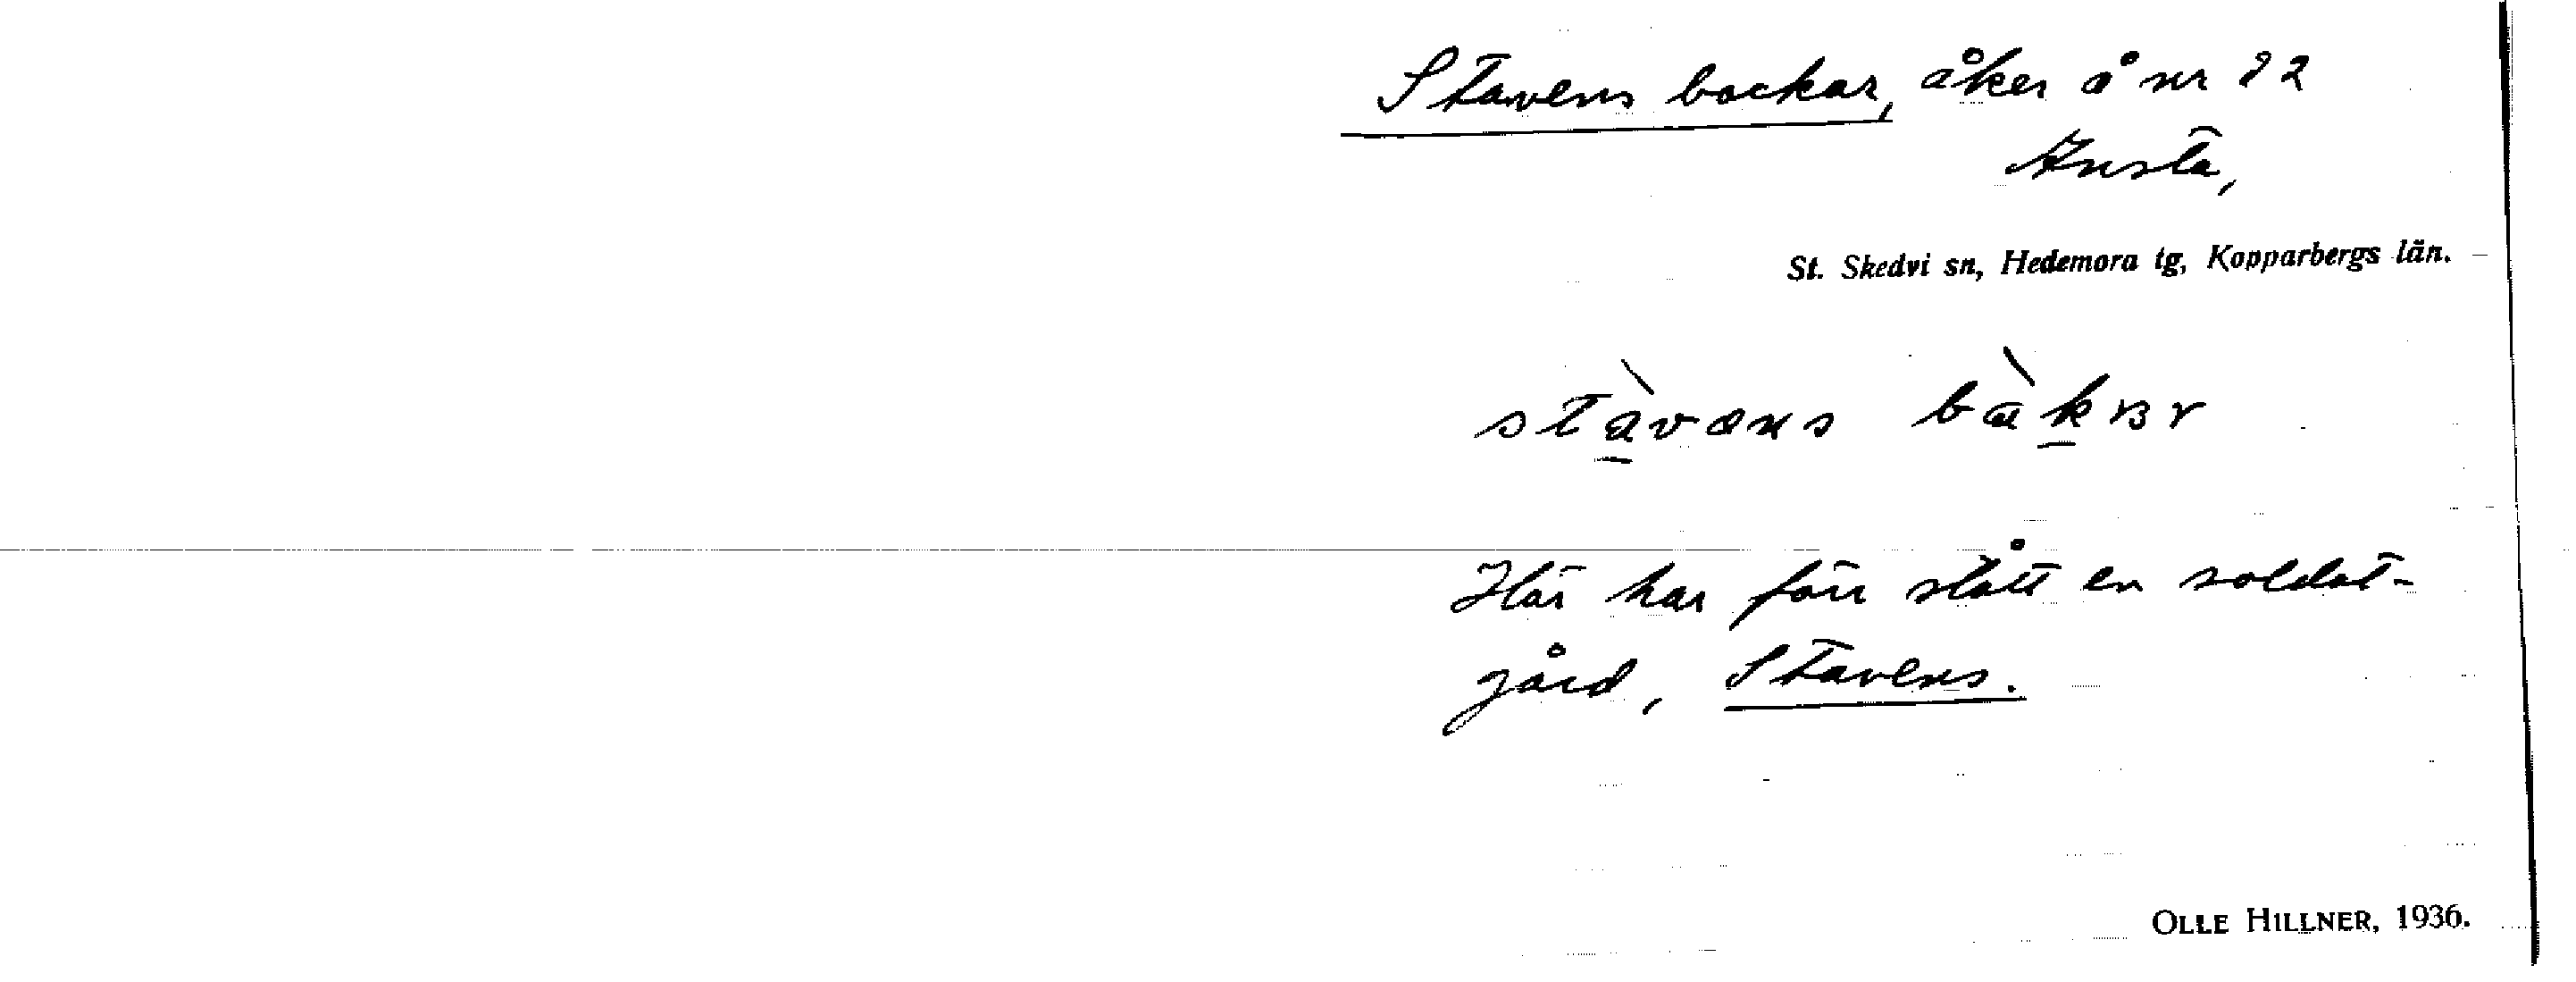 Stavens bockar, åker å nr 22
Knista,
St. Skedvi sn, Hedemora tg, Kopparbergs län.
Här har förr stått en soldat-
gård, Stavens.
OLLE HILLNER, 1936.